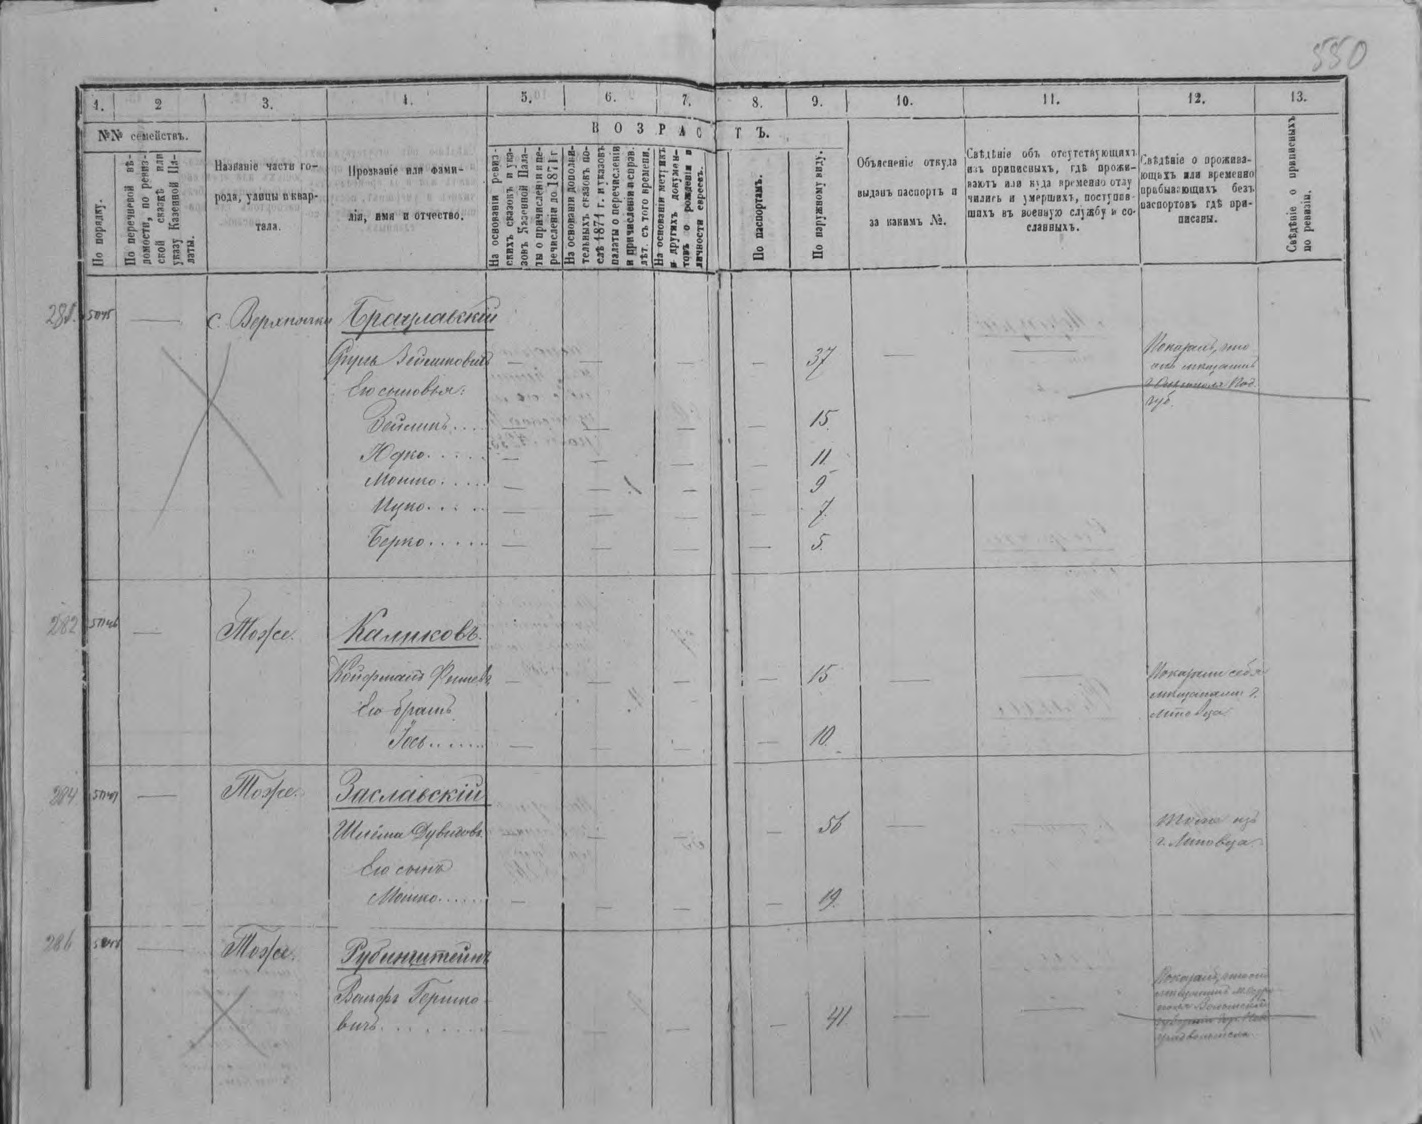 550
1. 2 3. 4. 5. 6. 7. 8. 9. 10. 11. 12. 13.
№№ семействъ.
ВОЗРАСТЪ.
По порядку.
По перечневой вѣ-
домости, по ревиз-
ской сказкѣ или
указу Казенной Па-
латы.
Названіе части го-
рода, улицы и квар-
тала.
Прозваніе или фами-
лія, имя и отчество.
На основаніи ревиз-
скихъ сказокъ и ука-
зовъ Казенной Пала-
ты о причисленіи и пе-
речисленіи до 1874 г
На основаніи дополни-
тельныхъ сказокъ по-
слѣ 1874 г. и указовъ
палаты о перечисленіи
и причисленіи и справ.
лѣт. съ того времени.
На основаніи метрикъ
и другихъ докумен-
товъ о рожденіи и
личности евреевъ.
По паспортамъ.
По наружному виду.
Объясненіе откуда
выданъ паспортъ и
за какимъ №.
Свѣдѣніе объ отсутствующихъ
изъ приписныхъ, гдѣ прожи-
ваютъ или куда временно отлу
чились и умершихъ, поступив-
шихъ въ военную службу и со-
сланныхъ.
Свѣдѣніе о прожива-
ющихъ или временно
прибывающихъ безъ
паспортовъ гдѣ при-
писаны.
Свѣдѣніе о приписныхъ
по ревизіи.
281. с. Верхнячка Брацлавскій
Зейликовичъ — — — — 37 — — Показалъ, что
Его сыновья: онъ мѣщанинъ
Под.
губ.
Зейликъ — — — — 15.
Юдко — — — — 11
Мошко — — — — 9
Ицко — — — — 7.
Берко — — — — 5.
282 — Тоже. Каликовъ.
Койфманъ — — — — 15 — — Показали себя
мѣщанами г.
Его братъ Липовца
Іось — — — — 10.
284 — Тоже. Заславскій
Шлёма Дувидовъ — — — — 56 — — Тоже изъ
г. Липовца
Его сынъ
Мошко — — — — 19.
286 — Тоже. Рубинштейнъ
Вольфъ Гершко-
вичъ — — — 41 — — Показалъ, что онъ
мѣщанинъ
Волынской
губерніи